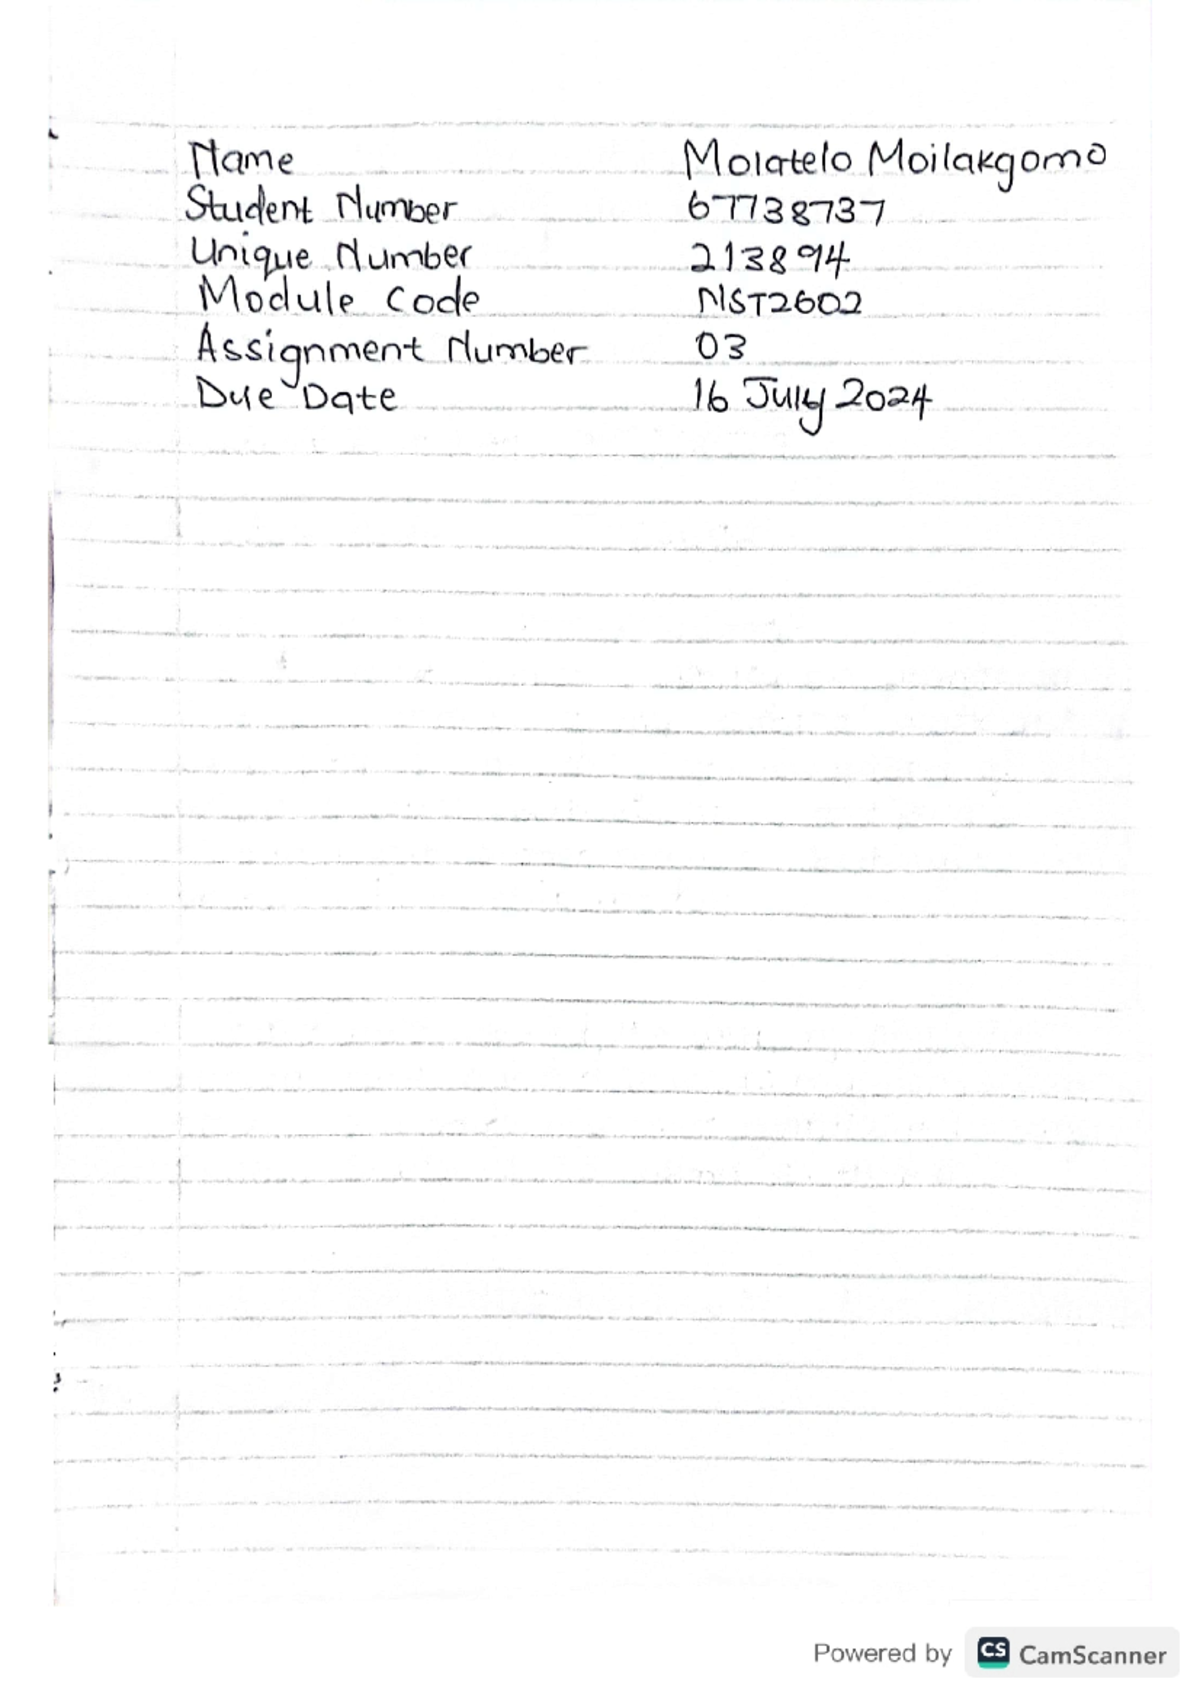 Name Molatelo Moilakgomo
Student Number 67738737
Unique Number 213894
Module Code NST2602
Assignment Number 03
Due Date 16 July 2024
Powered by CS CamScanner